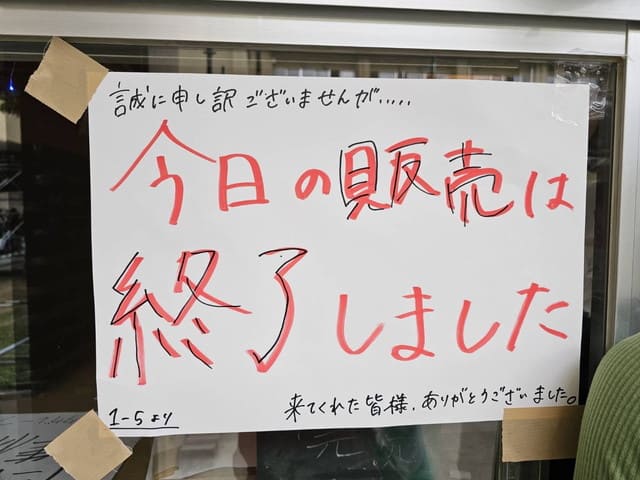 誠に申し訳ございませんが.....
今日の販売は
終了しました
来てくれた皆様、ありがとうございました。
1-5より